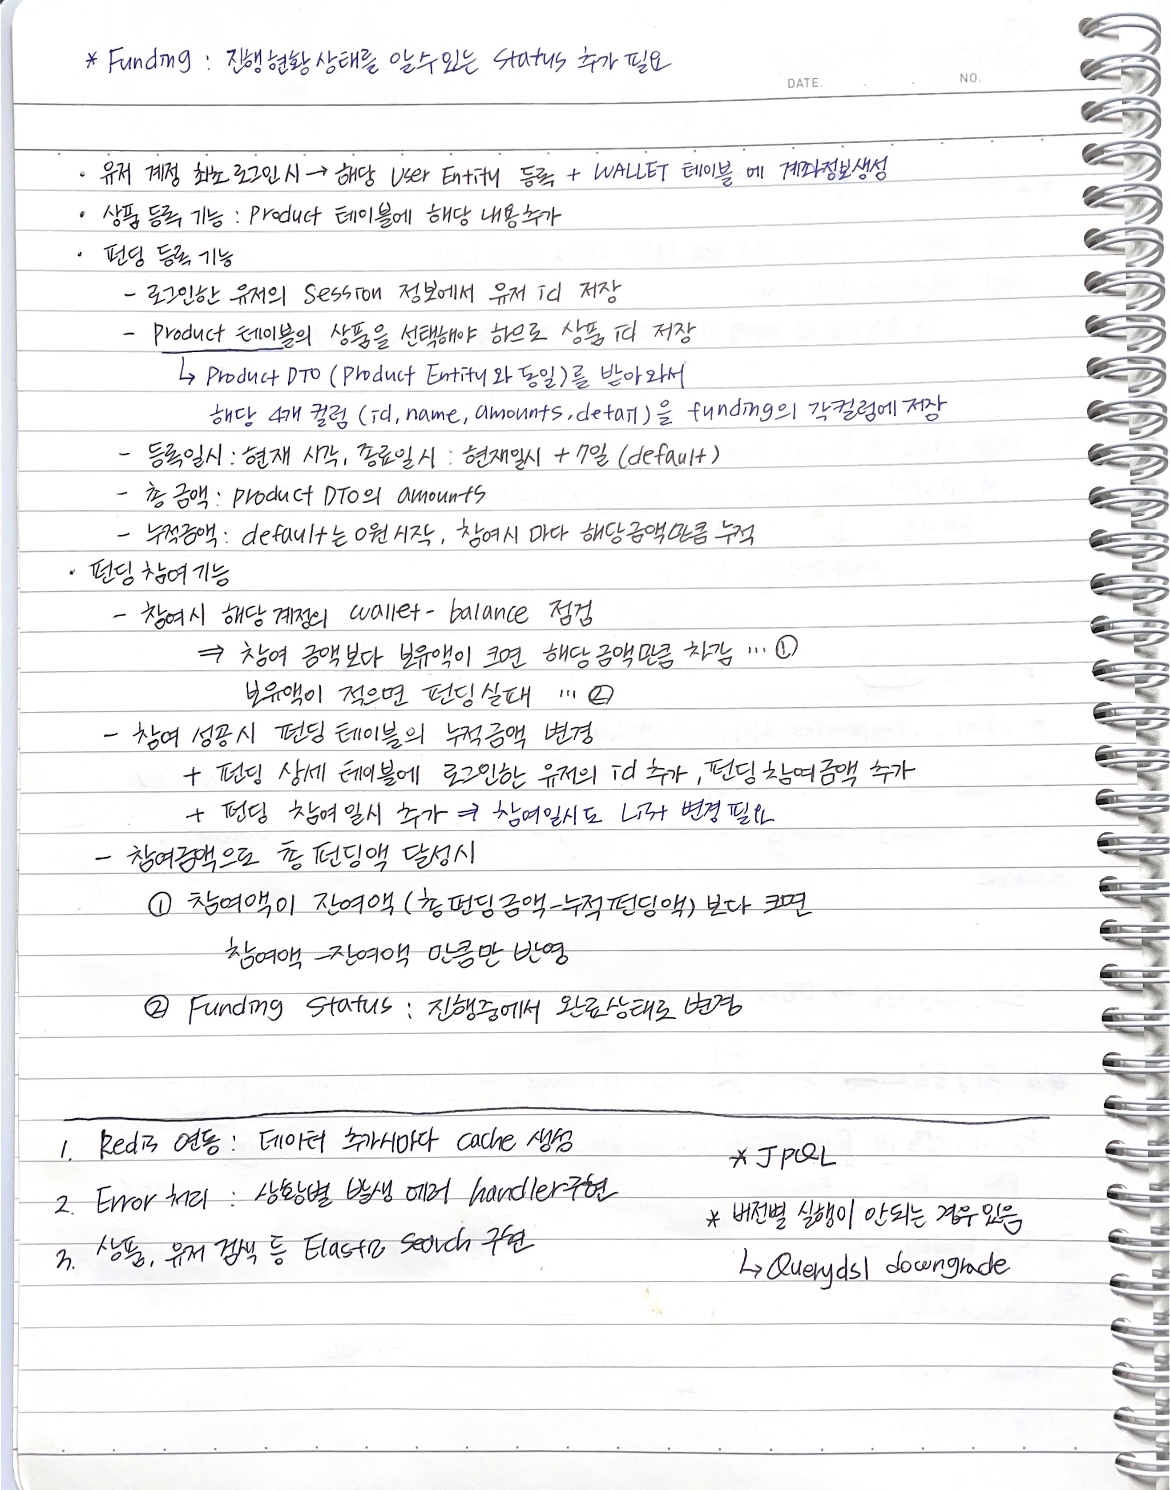 * Funding : 진행현황 상태를 알 수 있는 Status 추가 필요
DATE. . . NO.
· 유저 계정 최초 로그인 시 → 해당 User Entity 등록 + WALLET 테이블에 계좌정보생성
· 상품 등록 기능 : Product 테이블에 해당 내용 추가
· 펀딩 등록 기능
- 로그인한 유저의 Session 정보에서 유저 id 저장
- Product 테이블의 상품을 선택해야 하므로 상품 id 저장
↳ Product DTO (Product Entity와 동일)를 받아와서
해당 4개 컬럼 (id, name, amounts, detail)을 funding의 각컬럼에 저장
- 등록일시 : 현재 시각, 종료일시 : 현재일시 + 7일 (default)
- 총 금액 : product DTO의 amounts
- 누적금액 : default는 0원 시작, 참여시 마다 해당금액만큼 누적
· 펀딩 참여 기능
- 참여시 해당 계정의 wallet - balance 점검
⇒ 참여 금액보다 보유액이 크면 해당 금액만큼 차감 … ①
보유액이 적으면 펀딩실패 … ②
- 참여 성공시 펀딩 테이블의 누적금액 변경
+ 펀딩 상세 테이블에 로그인한 유저의 id 추가, 펀딩 참여금액 추가
+ 펀딩 참여일시 추가 ⇒ 참여일시도 List 변경 필요
- 참여금액으로 총 펀딩액 달성시
① 참여액이 잔여액 (총 펀딩금액 - 누적펀딩액) 보다 크면
참여액 - 잔여액 만큼만 반영
② Funding Status : 진행중에서 완료상태로 변경
1. Redis 연동 : 데이터 추가시마다 cache 생성
* JPQL
2. Error 처리 : 상황별 발생 에러 handler구현
* 버전별 실행이 안되는 경우 있음
3. 상품, 유저 검색 등 Elastic Search 구현
↳ Querydsl downgrade